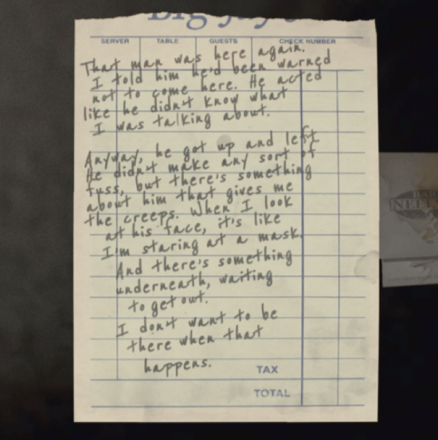 Big Jay's
SERVER TABLE GUESTS CHECK NUMBER
That man was here again.
I told him he'd been warned
not to come here. He acted
like he didn't know what
I was talking about.
Anyway, he got up and left.
He didn't make any sort of
fuss, but there's something
about him that gives me
the creeps. When I look
at his face, it's like
I'm staring at a mask.
And there's something
underneath, waiting
to get out.
I don't want to be
there when that
happens.
TAX
TOTAL